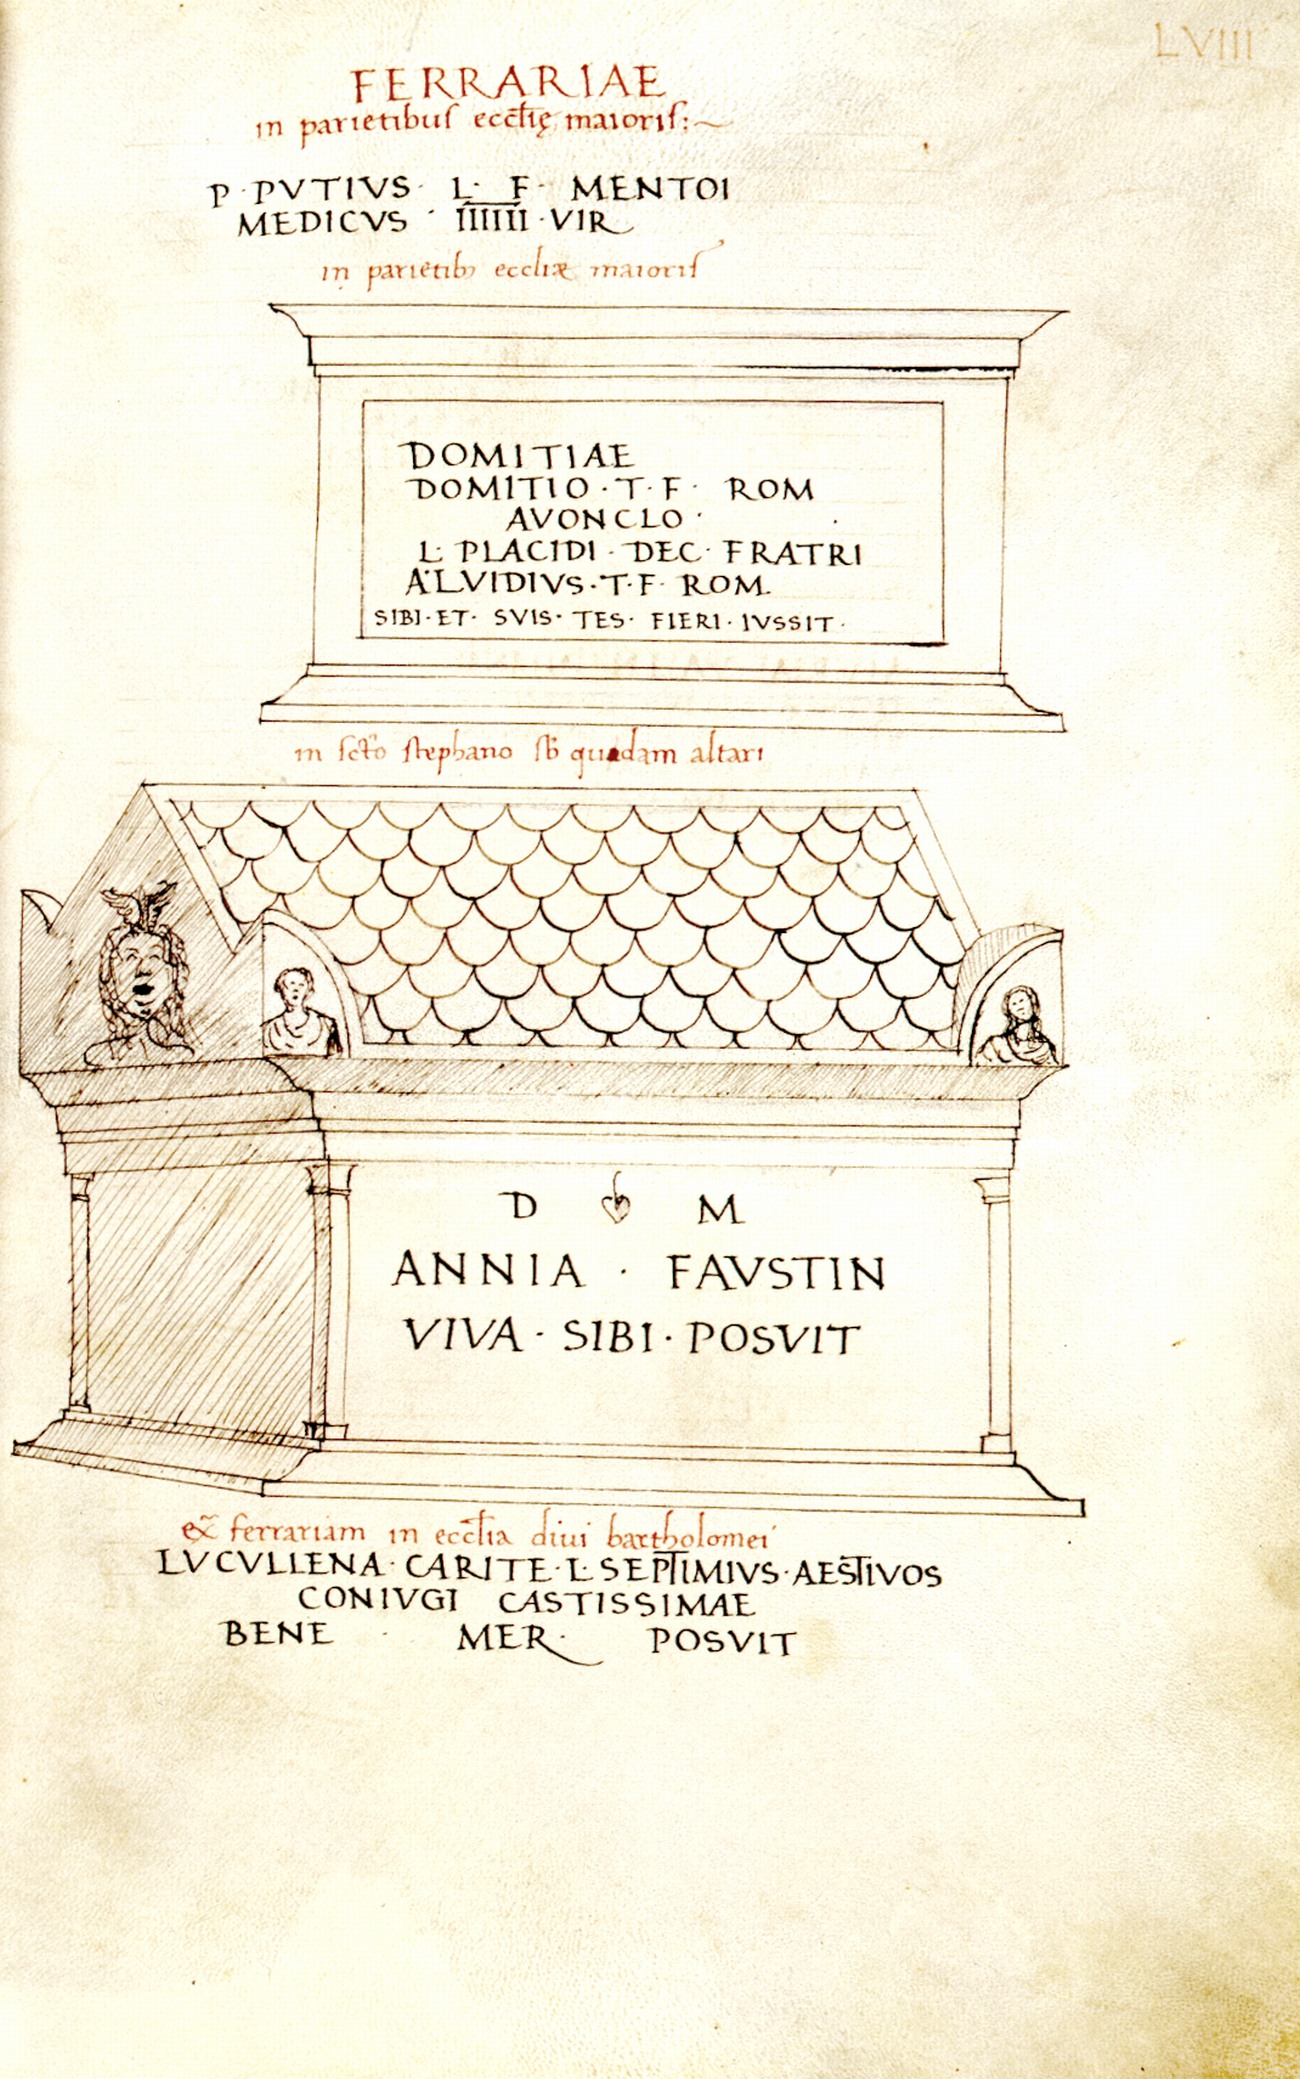 LVIII
FERRARIAE
in parietibus eccl̄ię maioris:~
P · PVTIVS · L · F · MENTOI
MEDICVS · I͞I͞I͞I͞I͞I · VIR
in parietib; eccliæ maioris
DOMITIAE
DOMITIO · T · F · ROM
AVONCLO ·
L · PLACIDI · DEC · FRATRI
A · LVIDIVS · T · F · ROM.
SIBI · ET · SVIS · TES · FIERI · IVSSIT ·
in sct̄o stephano sb̄ quadam altari
D M
ANNIA · FAVSTIN
VIVA · SIBI · POSVIT
ex̄ ferrariam in eccl̄ia diui bartholomei
LVCVLLENA · CARITE · L · SEPTIMIVS · AESTIVOS
CONIVGI CASTISSIMAE
BENE · MER · POSVIT